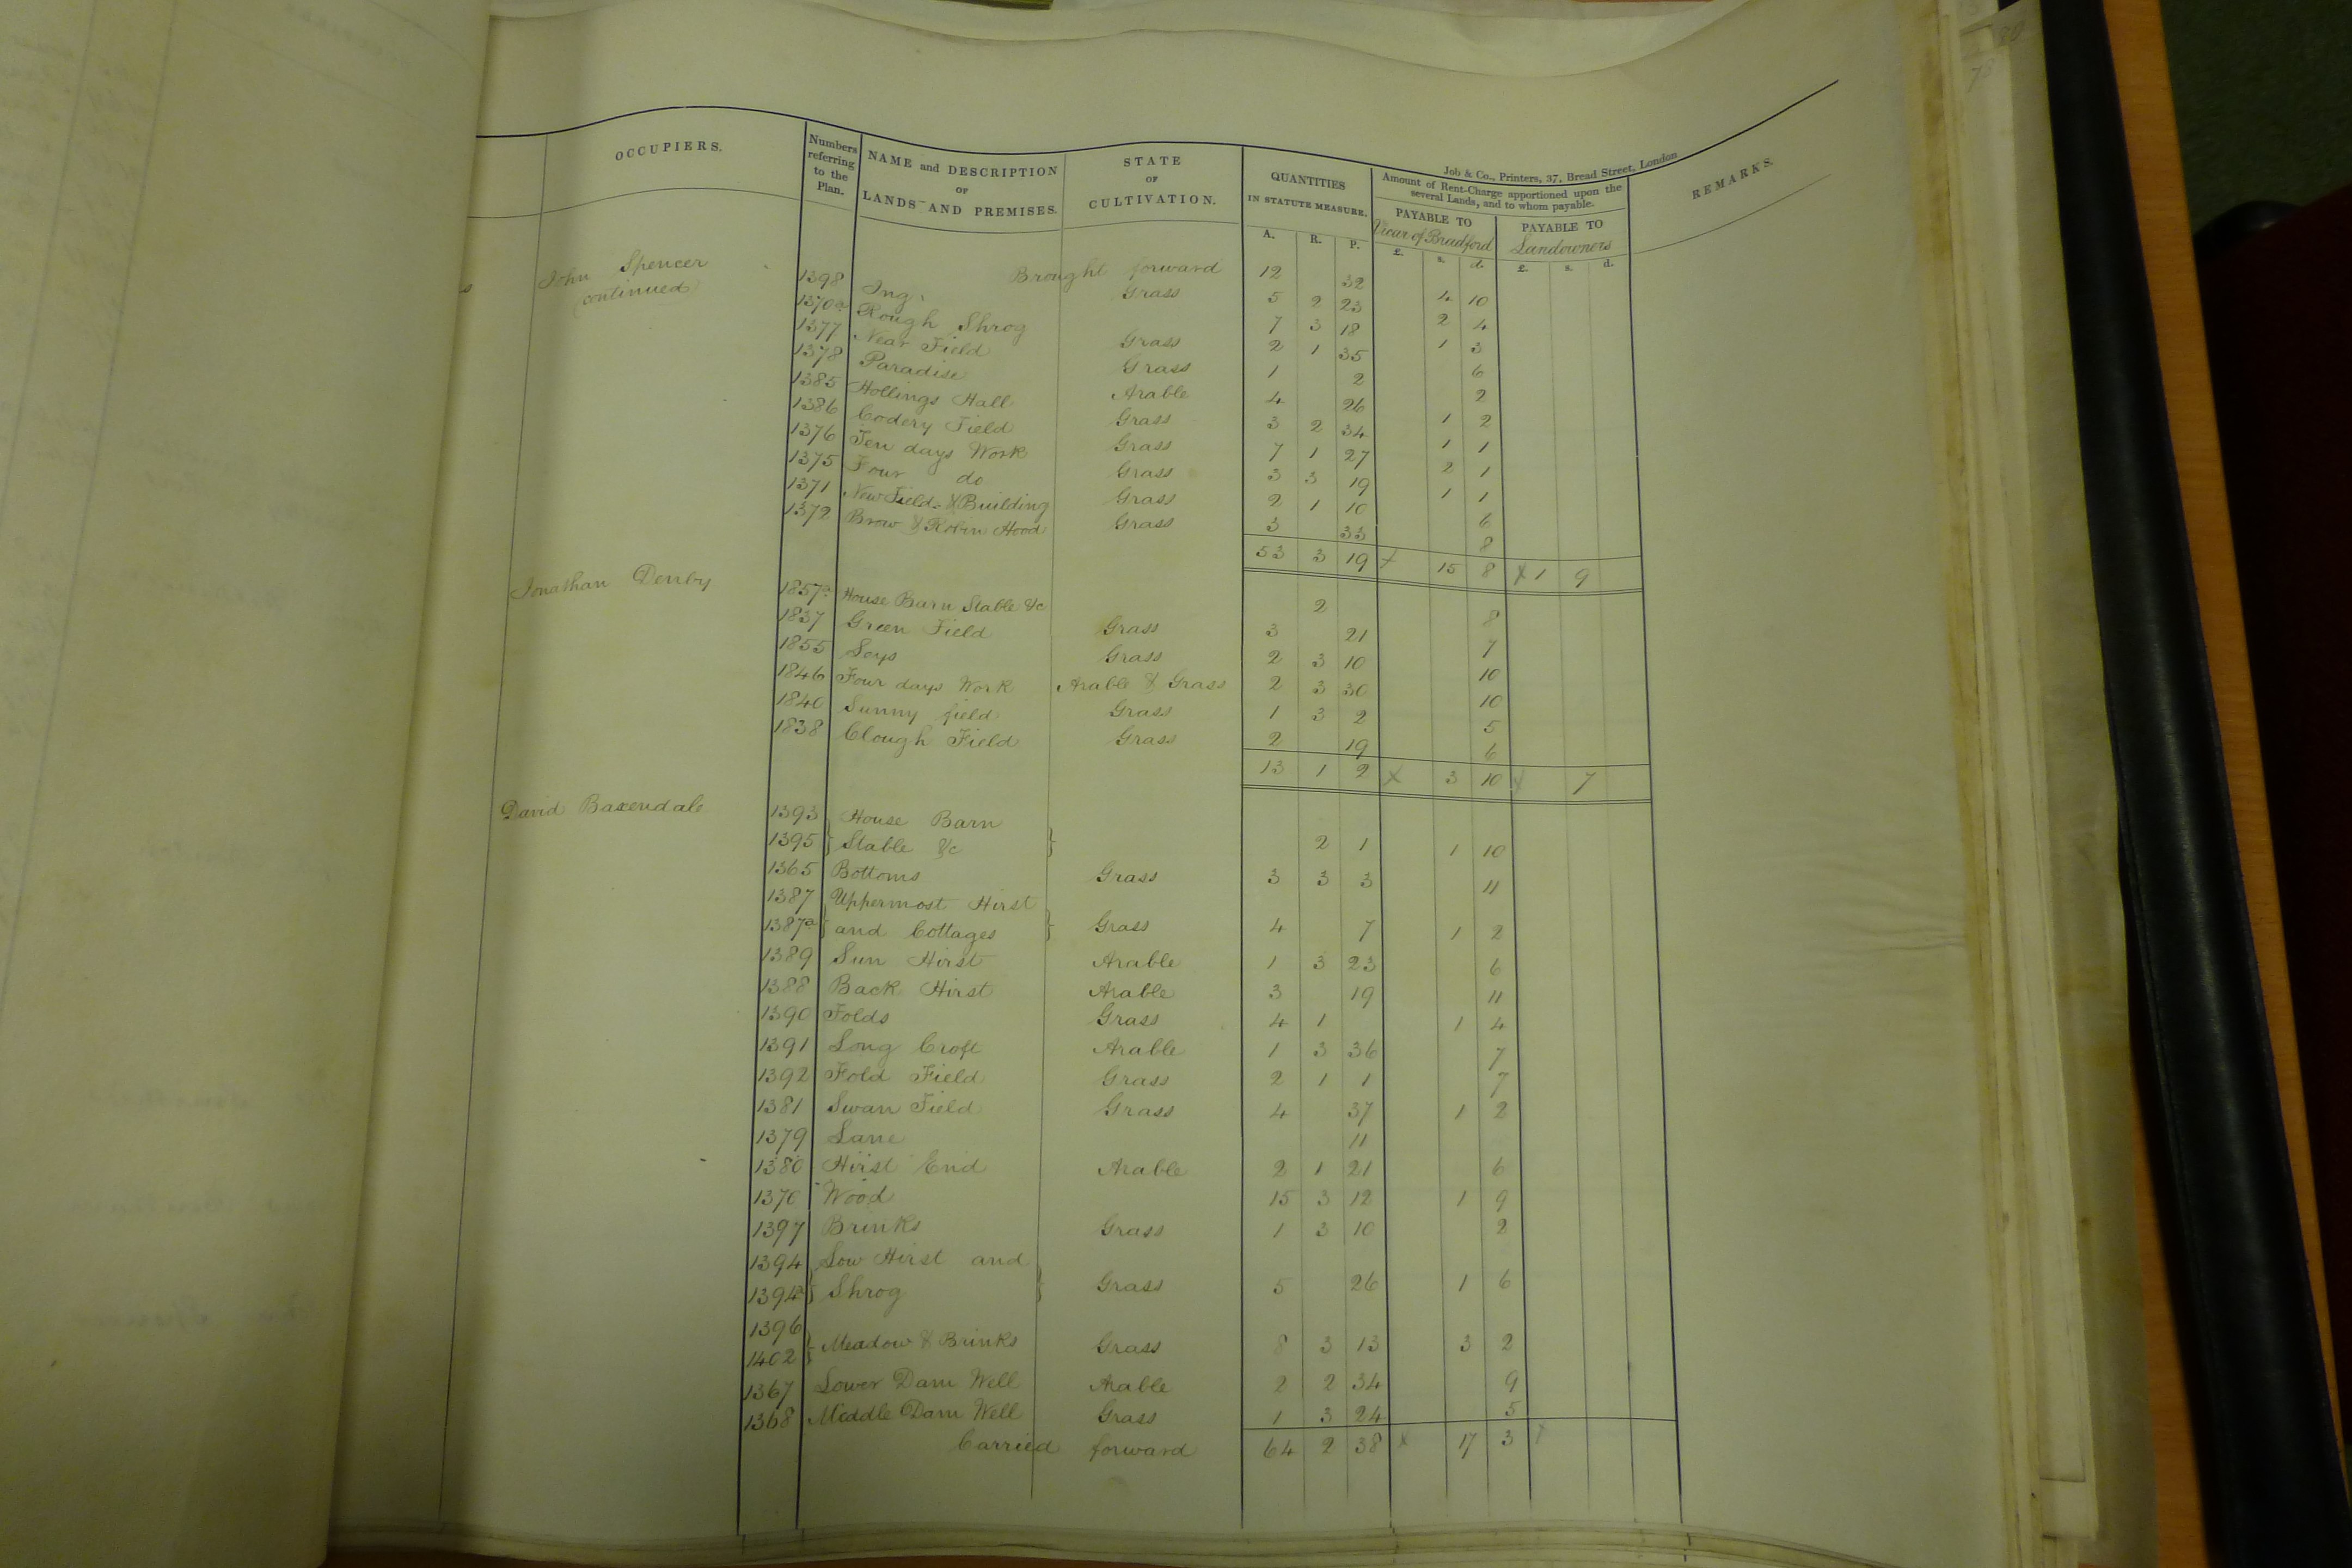 Job & Co., Printers, 37, Bread Street, London
OCCUPIERS. Numbers referring to the Plan. NAME and DESCRIPTION OF LANDS AND PREMISES. STATE OF CULTIVATION. QUANTITIES IN STATUTE MEASURE. Amount of Rent-Charge apportioned upon the several Lands, and to whom payable. REMARKS.
PAYABLE TO Vicar of Bradford PAYABLE TO Landowners
A. R. P. £. s. d. £. s. d.
John Spencer Brought forward 12 32 4 10
(continued) 1398 Ing Grass 5 2 23 2 4
1370a Rough Shrog 7 3 18 1 3
1377 Near Field Grass 2 1 35 6
1378 Paradise Grass 1 2 2
1385 Hollings Hall Arable 4 26 1 2
1386 Codery Field Grass 3 2 34 1 1
1376 Ten days Work Grass 7 1 27 2 1
1375 Four do Grass 3 3 19 1 1
1371 New Field & Building Grass 2 1 10 6
1372 Brow & Robin Hood Grass 3 33 8
53 3 19 15 8 1 9
Jonathan Denby 1857a House Barn Stable &c 2 8
1837 Green Field Grass 3 21 7
1855 Leys Grass 2 3 10 10
1846 Four days Work Arable & Grass 2 3 30 10
1840 Sunny field Grass 1 3 2 5
1838 Clough Field Grass 2 19 6
13 1 2 3 10 7
David Baxendale 1393 House Barn
1395 Stable &c 2 1 1 10
1365 Bottoms Grass 3 3 3 11
1387 Uppermost Hirst
1387a and Cottages Grass 4 7 1 2
1389 Sun Hirst Arable 1 3 23 6
1388 Back Hirst Arable 3 19 11
1390 Folds Grass 4 1 1 4
1391 Long Croft Arable 1 3 36 7
1392 Fold Field Grass 2 1 1 7
1381 Swan Field Grass 4 37 1 2
1379 Lane 11
1380 Hirst End Arable 2 1 21 6
1370 Wood 15 3 12 1 9
1397 Brinks Grass 1 3 10 2
1394 Low Hirst and
1394a Shrog Grass 5 26 1 6
1396
1402 Meadow & Brinks Grass 8 3 13 3 2
1367 Lower Dam Well Arable 2 2 34 9
1368 Meddle Dam Well Grass 1 3 24 5
Carried forward 64 2 38 17 3